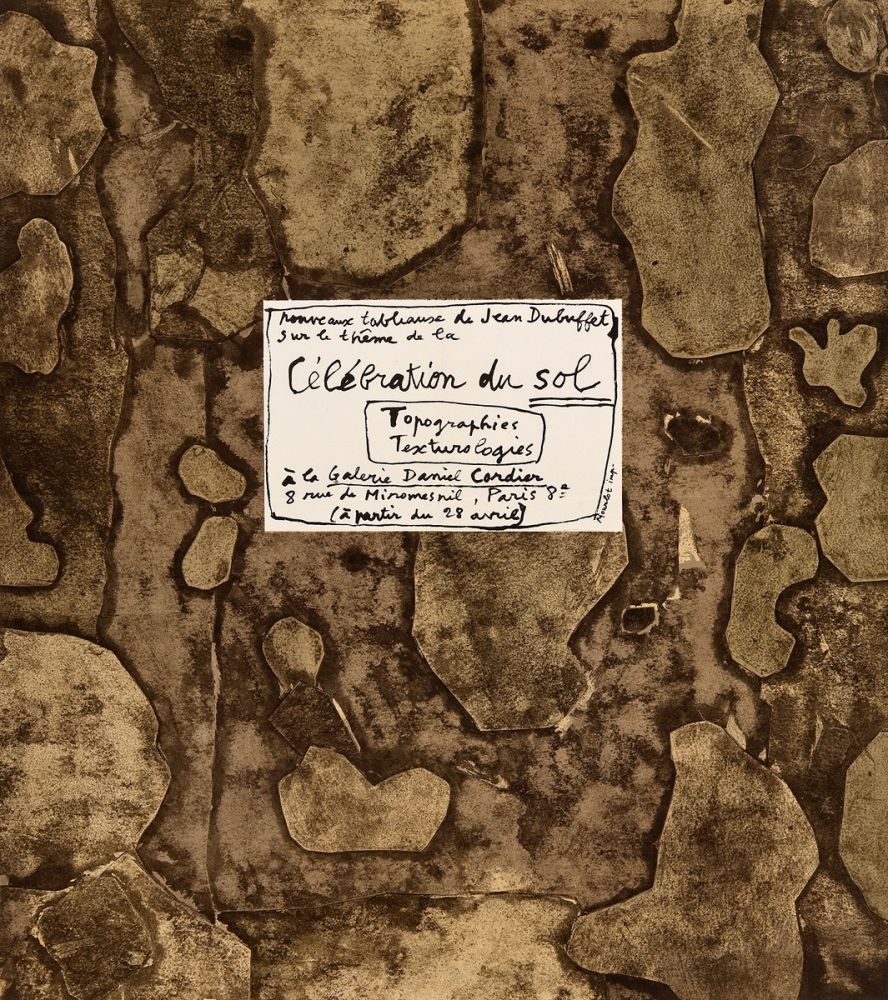 nouveaux tableaux de Jean Dubuffet
sur le thême de la
Célébration du sol
Topographies
Texturologies
à la Galerie Daniel Cordier
8 rue de Miromesnil, Paris 8e
(à partir du 28 avril)
Mourlot imp.